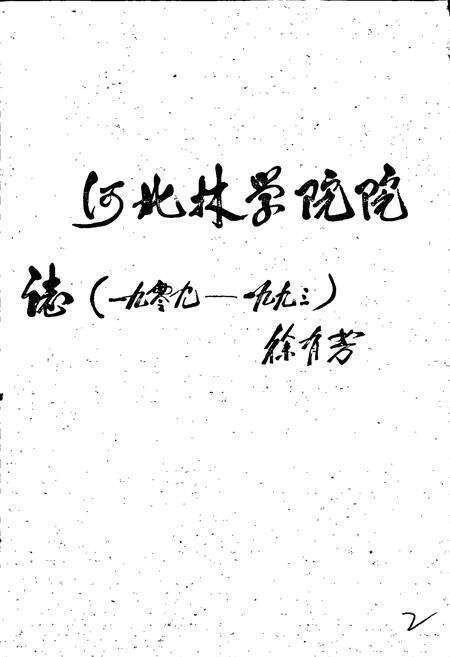 河北林学院院
誌（一九零九—一九九三）
徐有芳
2